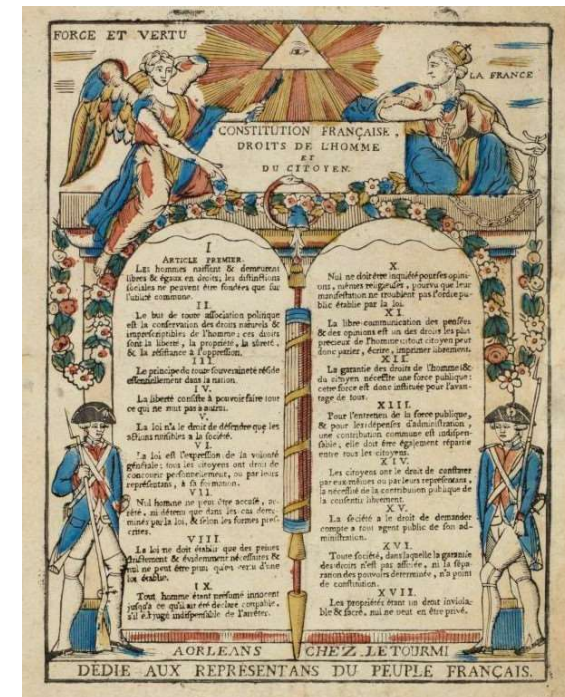 FORCE ET VERTU
LA FRANCE
CONSTITUTION FRANÇAISE,
DROITS DE L'HOMME
ET
DU CITOYEN.
I
ARTICLE PREMIER.
Les hommes naissent & demeurent
libres & égaux en droits; les distinctions
sociales ne peuvent être fondées que sur
l'utilité commune.
II.
Le but de toute association politique
est la conservation des droits naturels &
imprescriptibles de l'homme; ces droits
sont la liberté, la propriété, la sûreté,
& la résistance à l'oppression.
III.
Le principe de toute souveraineté réside
essentiellement dans la nation.
IV.
La liberté consiste à pouvoir faire tout
ce qui ne nuit pas à autrui.
V.
La loi n'a le droit de défendre que les
actions nuisibles a la société.
VI.
La loi est l'expression de la volonté
générale; tous les citoyens ont droit de
concourir personnellement, ou par leurs
représentans, à sa formation.
VII.
Nul homme ne peut être accusé, ar-
rêté, ni détenu que dans les cas déter-
minés par la loi, & selon les formes pres-
crites.
VIII.
La loi ne doit établir que des peines
strictement & évidemment nécessaires &
nul ne peut être puni qu'en vertu d'une
loi établie.
IX.
Tout homme étant présumé innocent
jusqu'a ce qu'il ait été déclaré coupable,
s'il est jugé indispensable de l'arrêter.
X.
Nul ne doit être inquiété pour ses opini-
ons, mêmes religieuses, pourvu que leur
manifestation ne troublent pas l'ordre pu-
blic établie par la loi.
XI.
La libre communication des pensées
& des opinions est un des droits les plus
precieux de l'homme: tout citoyen peut
donc parler, écrire, imprimer librement.
XII.
La garantie des droits de l'homme &
du citoyen nécessite une force publique:
cette force est donc instituée pour l'avan-
tage de tous.
XIII.
Pour l'entretien de la force publique,
& pour les dépenses d'administration,
une contribution commune est indispen-
sable; elle doit être également répartie
entre tous les citoyens.
XIV.
Les citoyens ont le droit de constater
par eux mêmes ou par leurs représentans,
la nécessité de la contribution publique de
la consentir librement.
XV.
La société a le droit de demander
compte a tout agent public de son ad-
ministration.
XVI.
Toute société, dans laquelle la garantie
des droits n'est pas assurée, ni la sépa-
ration des pouvoirs déterminée, n'a point
de constitution.
XVII.
Les propriétés étant un droit inviola-
ble & sacré, nul ne peut en être privé.
A ORLEANS CHEZ LETOURMI
DÉDIÉ AUX REPRÉSENTANS DU PEUPLE FRANÇAIS.